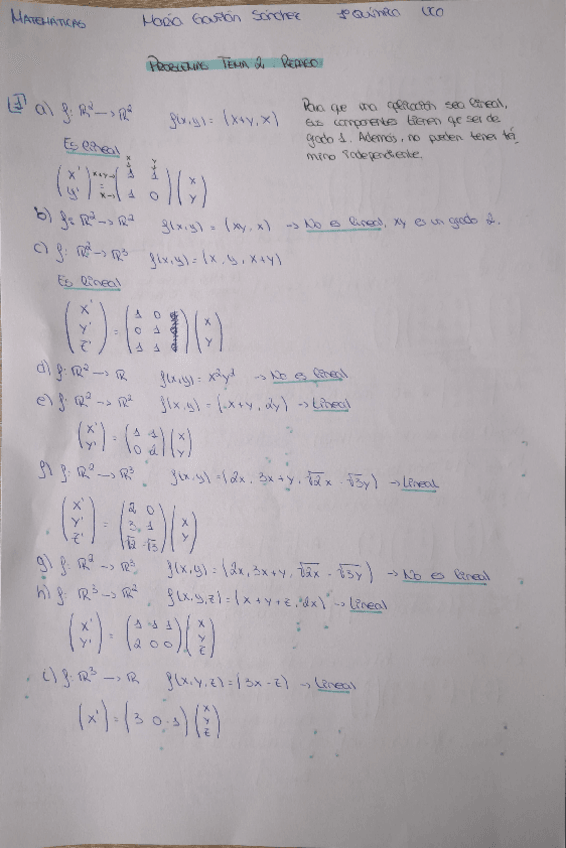 MATEMÁTICAS María Gavilán Sánchez 1º QUÍMICA UCO
PROBLEMAS TEMA 2. REPASO
1 a) f: R² → R² f(x,y) = (x+y, x)
Para que una aplicación sea lineal,
sus componentes tienen que ser de
grado 1. Además, no pueden tener tér
mino independiente.
Es lineal
x y
(x' y') x+y→ = x→ (1 1 1 0) (x y)
b) f: R² → R² f(x,y) = (xy, x) → No es lineal, xy es un grado 2.
c) f: R² → R³ f(x,y) = (x, y, x+y)
Es lineal
(x' y' z') = (1 0 0 1 1 1) (x y)
d) f: R² → R f(x,y) = x²y² → No es lineal
e) f: R² → R² f(x,y) = (x+y, 2y) → Lineal
(x' y') = (1 1 0 2) (x y)
f) f: R² → R³ f(x,y) = (2x, 3x+y, √2x - √3y) → Lineal
(x' y' z') = (2 0 3 1 √2 -√3) (x y)
g) f: R² → R³ f(x,y) = (2x, 3x+y, √2x - √3y) → No es lineal
h) f: R³ → R² f(x,y,z) = (x+y+z, 2x) → Lineal
(x' y') = (1 1 1 2 0 0) (x y z)
i) f: R³ → R f(x,y,z) = (3x-z) → Lineal
(x') = (3 0 -1) (x y z)